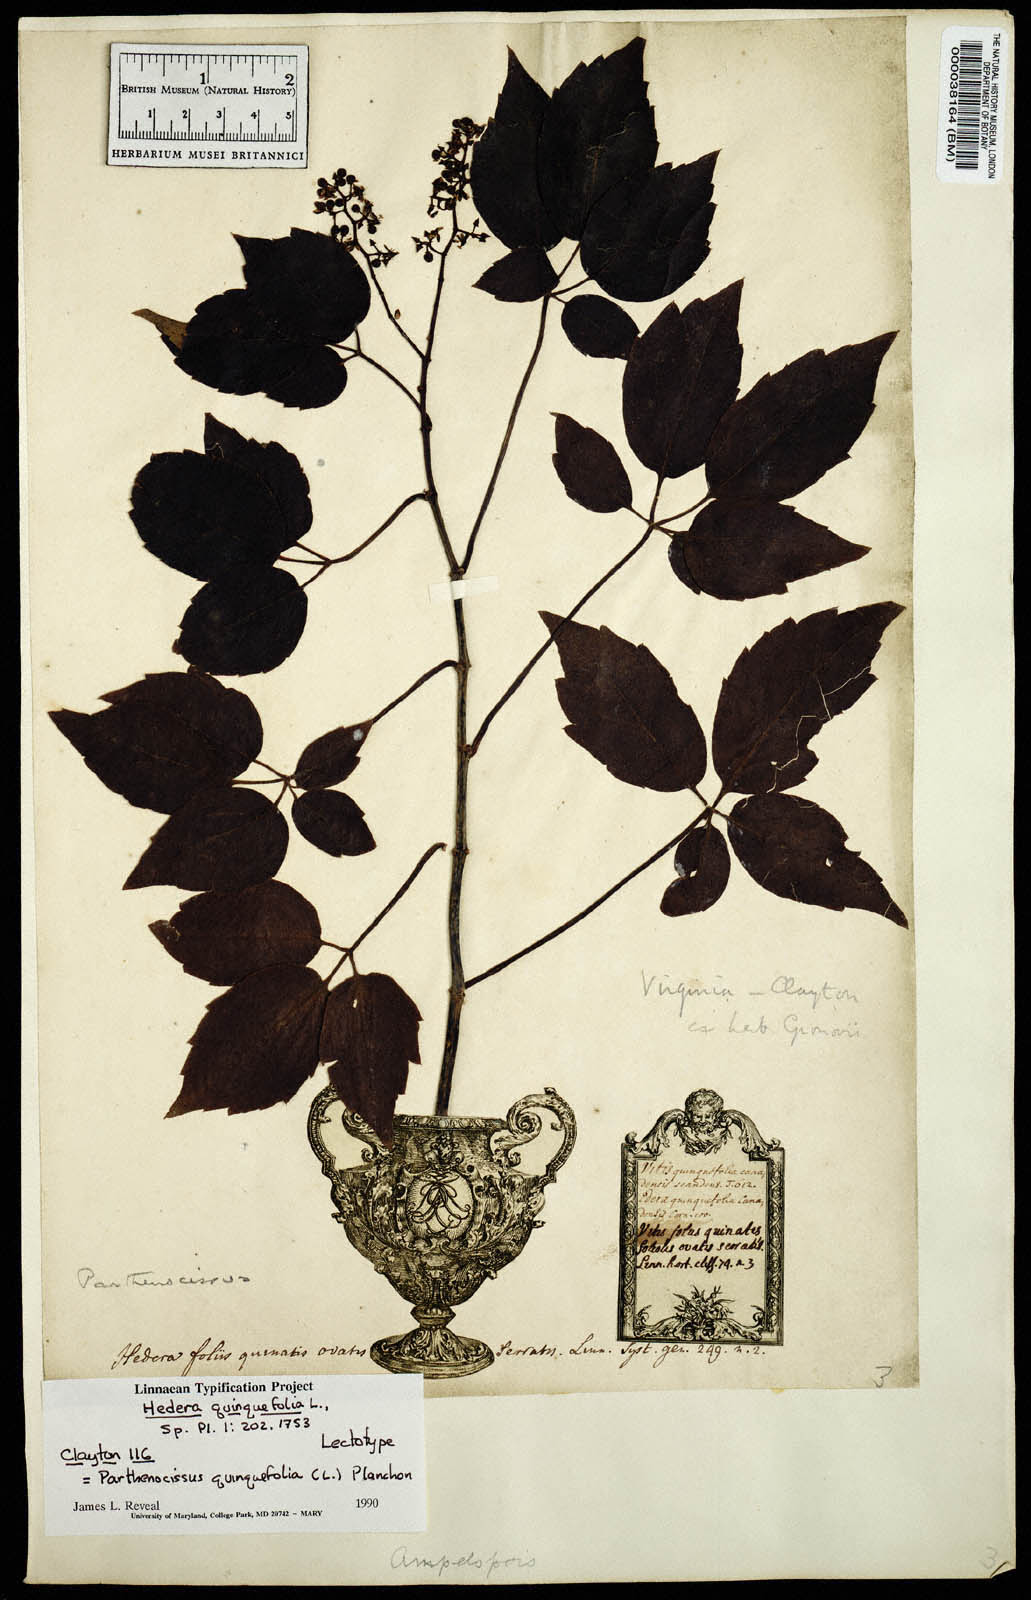 1 2
BRITISH MUSEUM (NATURAL HISTORY)
1 2 3 4 5
HERBARIUM MUSEI BRITANNICI
THE NATURAL HISTORY MUSEUM, LONDON
DEPARTMENT OF BOTANY
000038164 (BM)
Virginia - Clayton
ex herb. Gronovii
Vitis quinquefolia cana,
densis scandens. T. 612.
Edera quinquefolia Cana,
densis Corn. 100.
Vitis foliis quinatis
foliolis ovatis serratis.
Linn. hort. cliff. 74. n. 3
Parthenocissus
Hedera foliis quinatis ovatis serratis. Linn. Syst. gen. 249. n. 2.
3
Linnaean Typification Project
Hedera quinquefolia L.,
Sp. Pl. 1: 202. 1753
Lectotype
Clayton 116
= Parthenocissus quinquefolia (L.) Planchon
James L. Reveal 1990
University of Maryland, College Park, MD 20742 – MARY
Ampelopsis
3